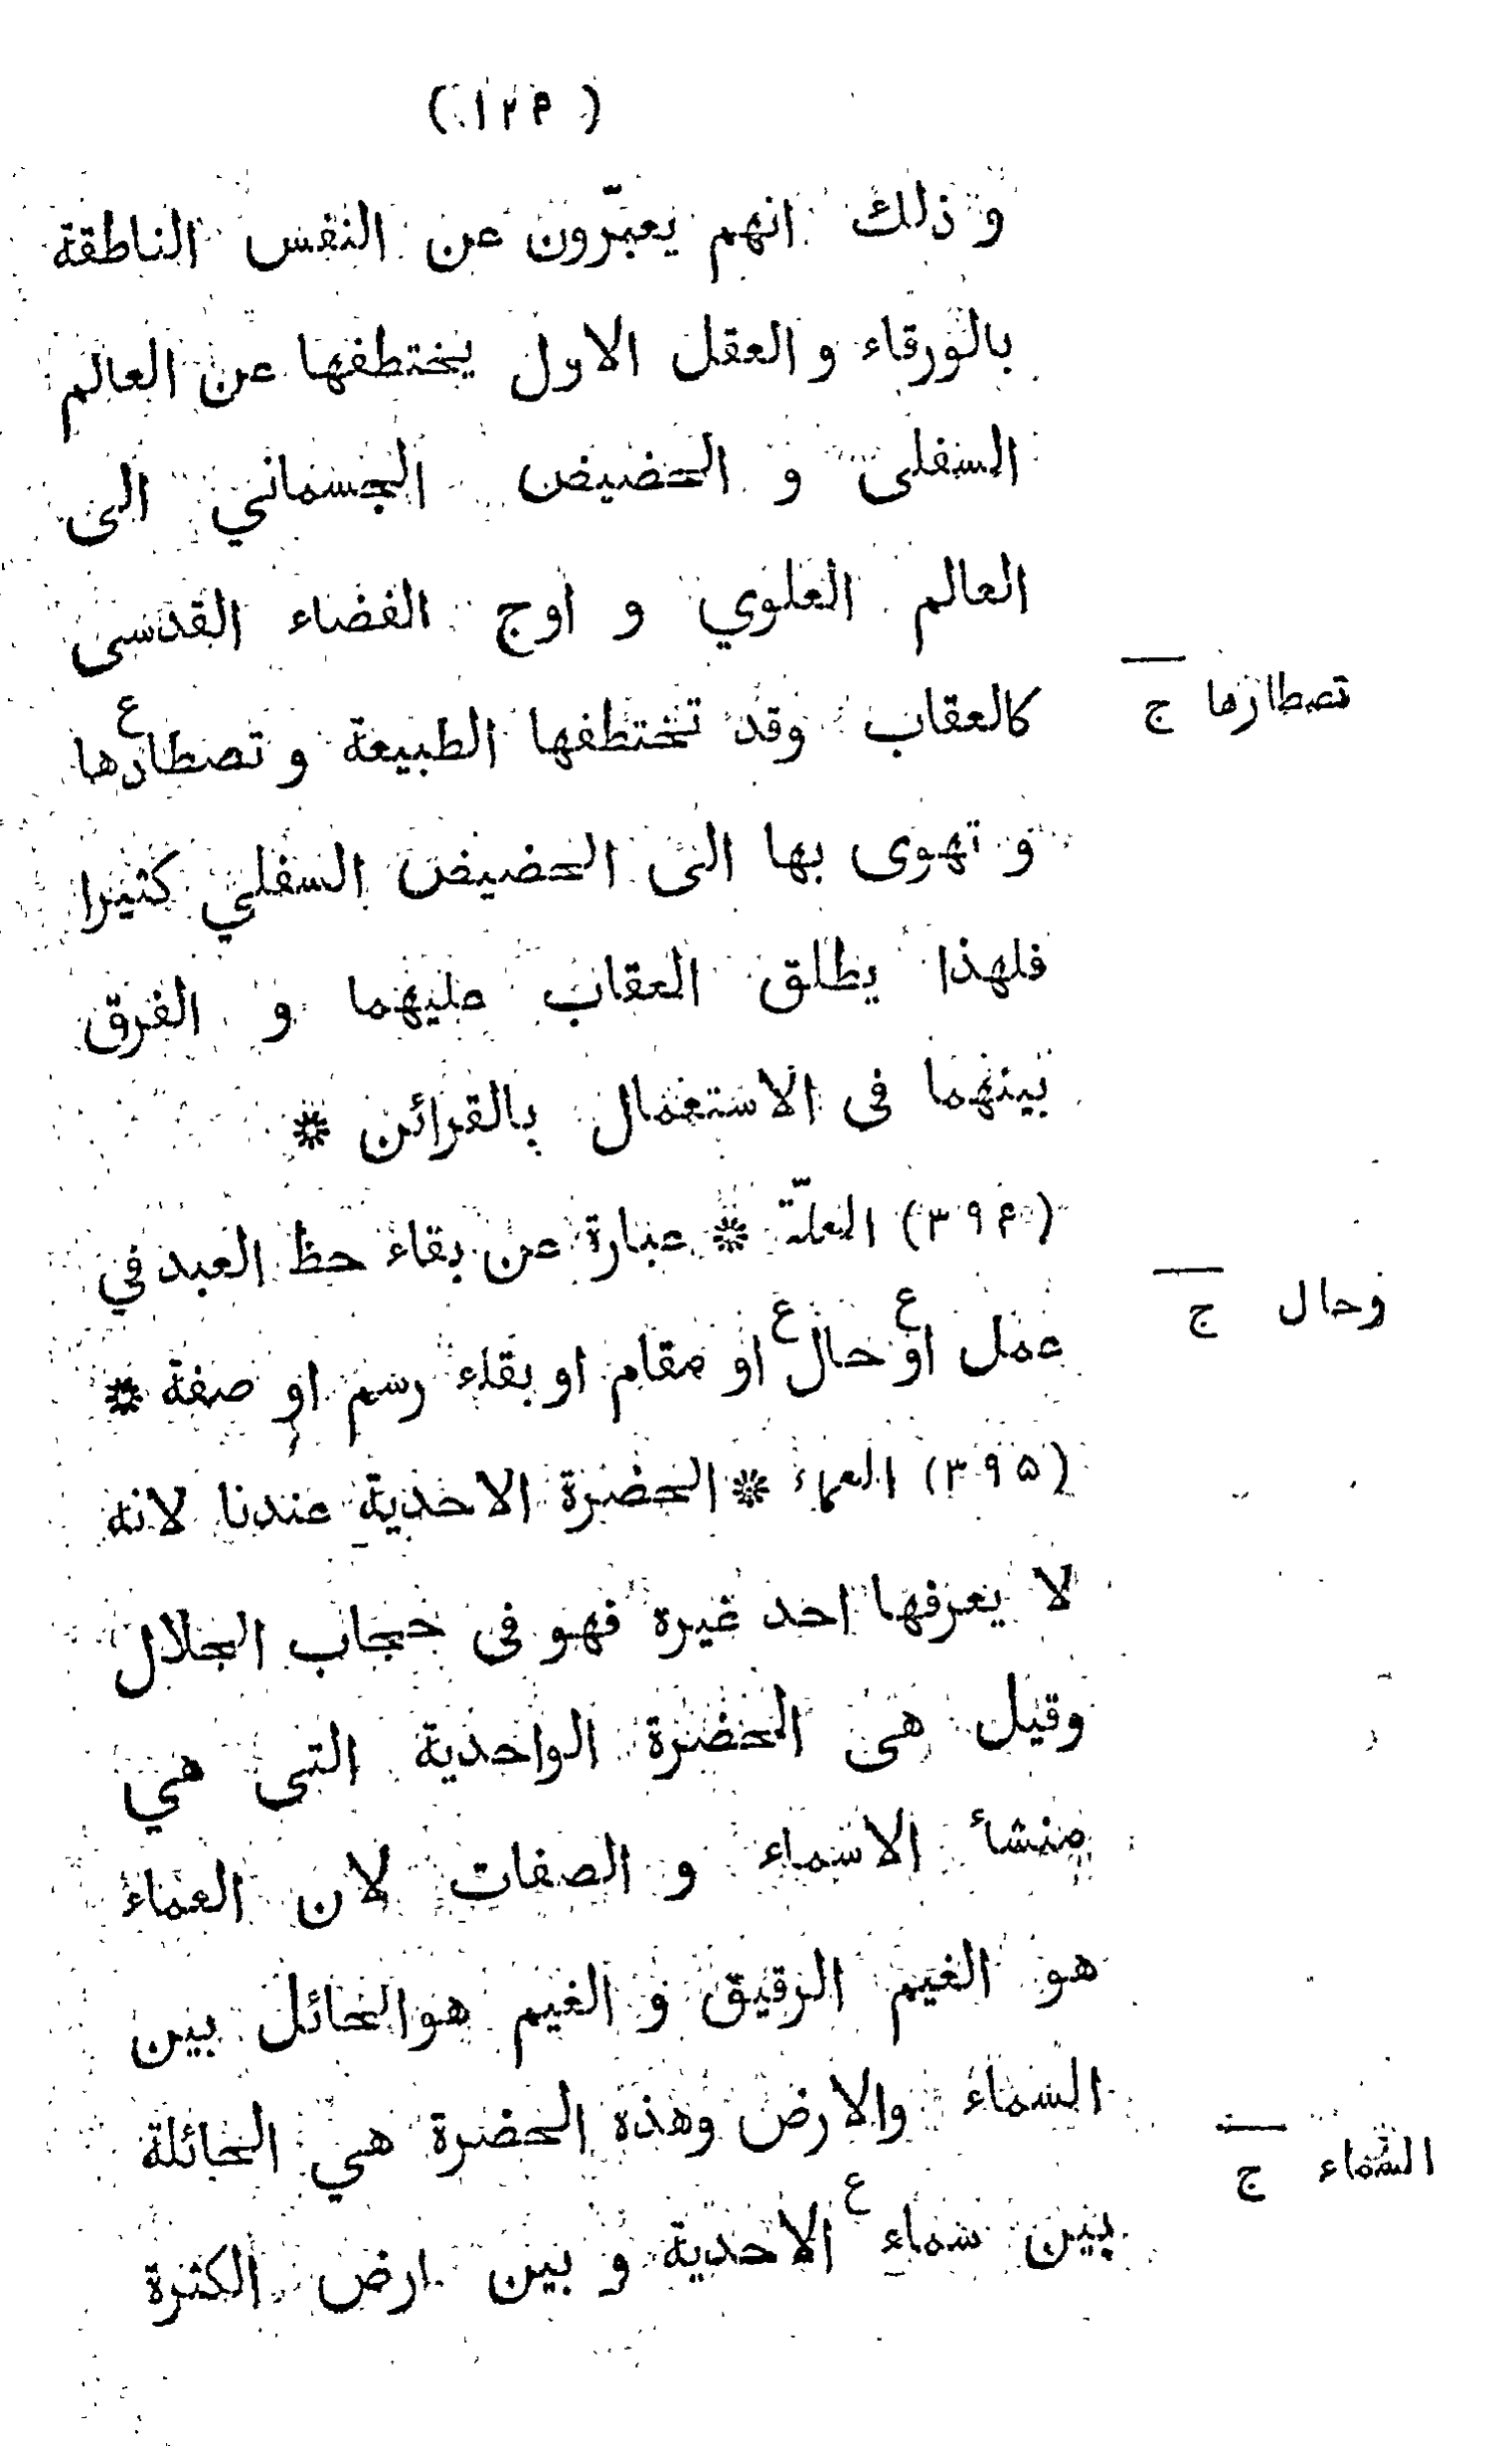 ( ۱۲۴ )
و ذلك انهم يعبّرون عن النفس الناطقة
بالورقاء و العقل الاول يختطفها عن العالم
السفلى و الحضيض الجسماني الى
العالم العلوي و اوج الفضاء القدسى
كالعقاب وقد تختطفها الطبيعة و تصطادها ع
تصطادها ج
و تهوى بها الى الحضيض السفلي كثيرا
فلهذا يطلق العقاب عليهما و الفرق
بينهما فى الاستعمال بالقرائن *
(۳۹۴) العلّة * عبارة عن بقاء حظ العبد في
عمل او ع حال ع او مقام او بقاء رسم او صفة *
وحال ج
(۳۹۵) العماء * الحضرة الاحدية عندنا لانه
لا يعرفها احد غيره فهو فى حجاب الجلال
وقيل هى الحضرة الواحدية التى هي
منشأ الاسماء و الصفات لان العماء
هو الغيم الرقيق و الغيم هوالحائل بين
السماء والارض وهذه الحضرة هي الحائلة
السماء ج
بين سماء ع الاحدية و بين ارض الكثرة